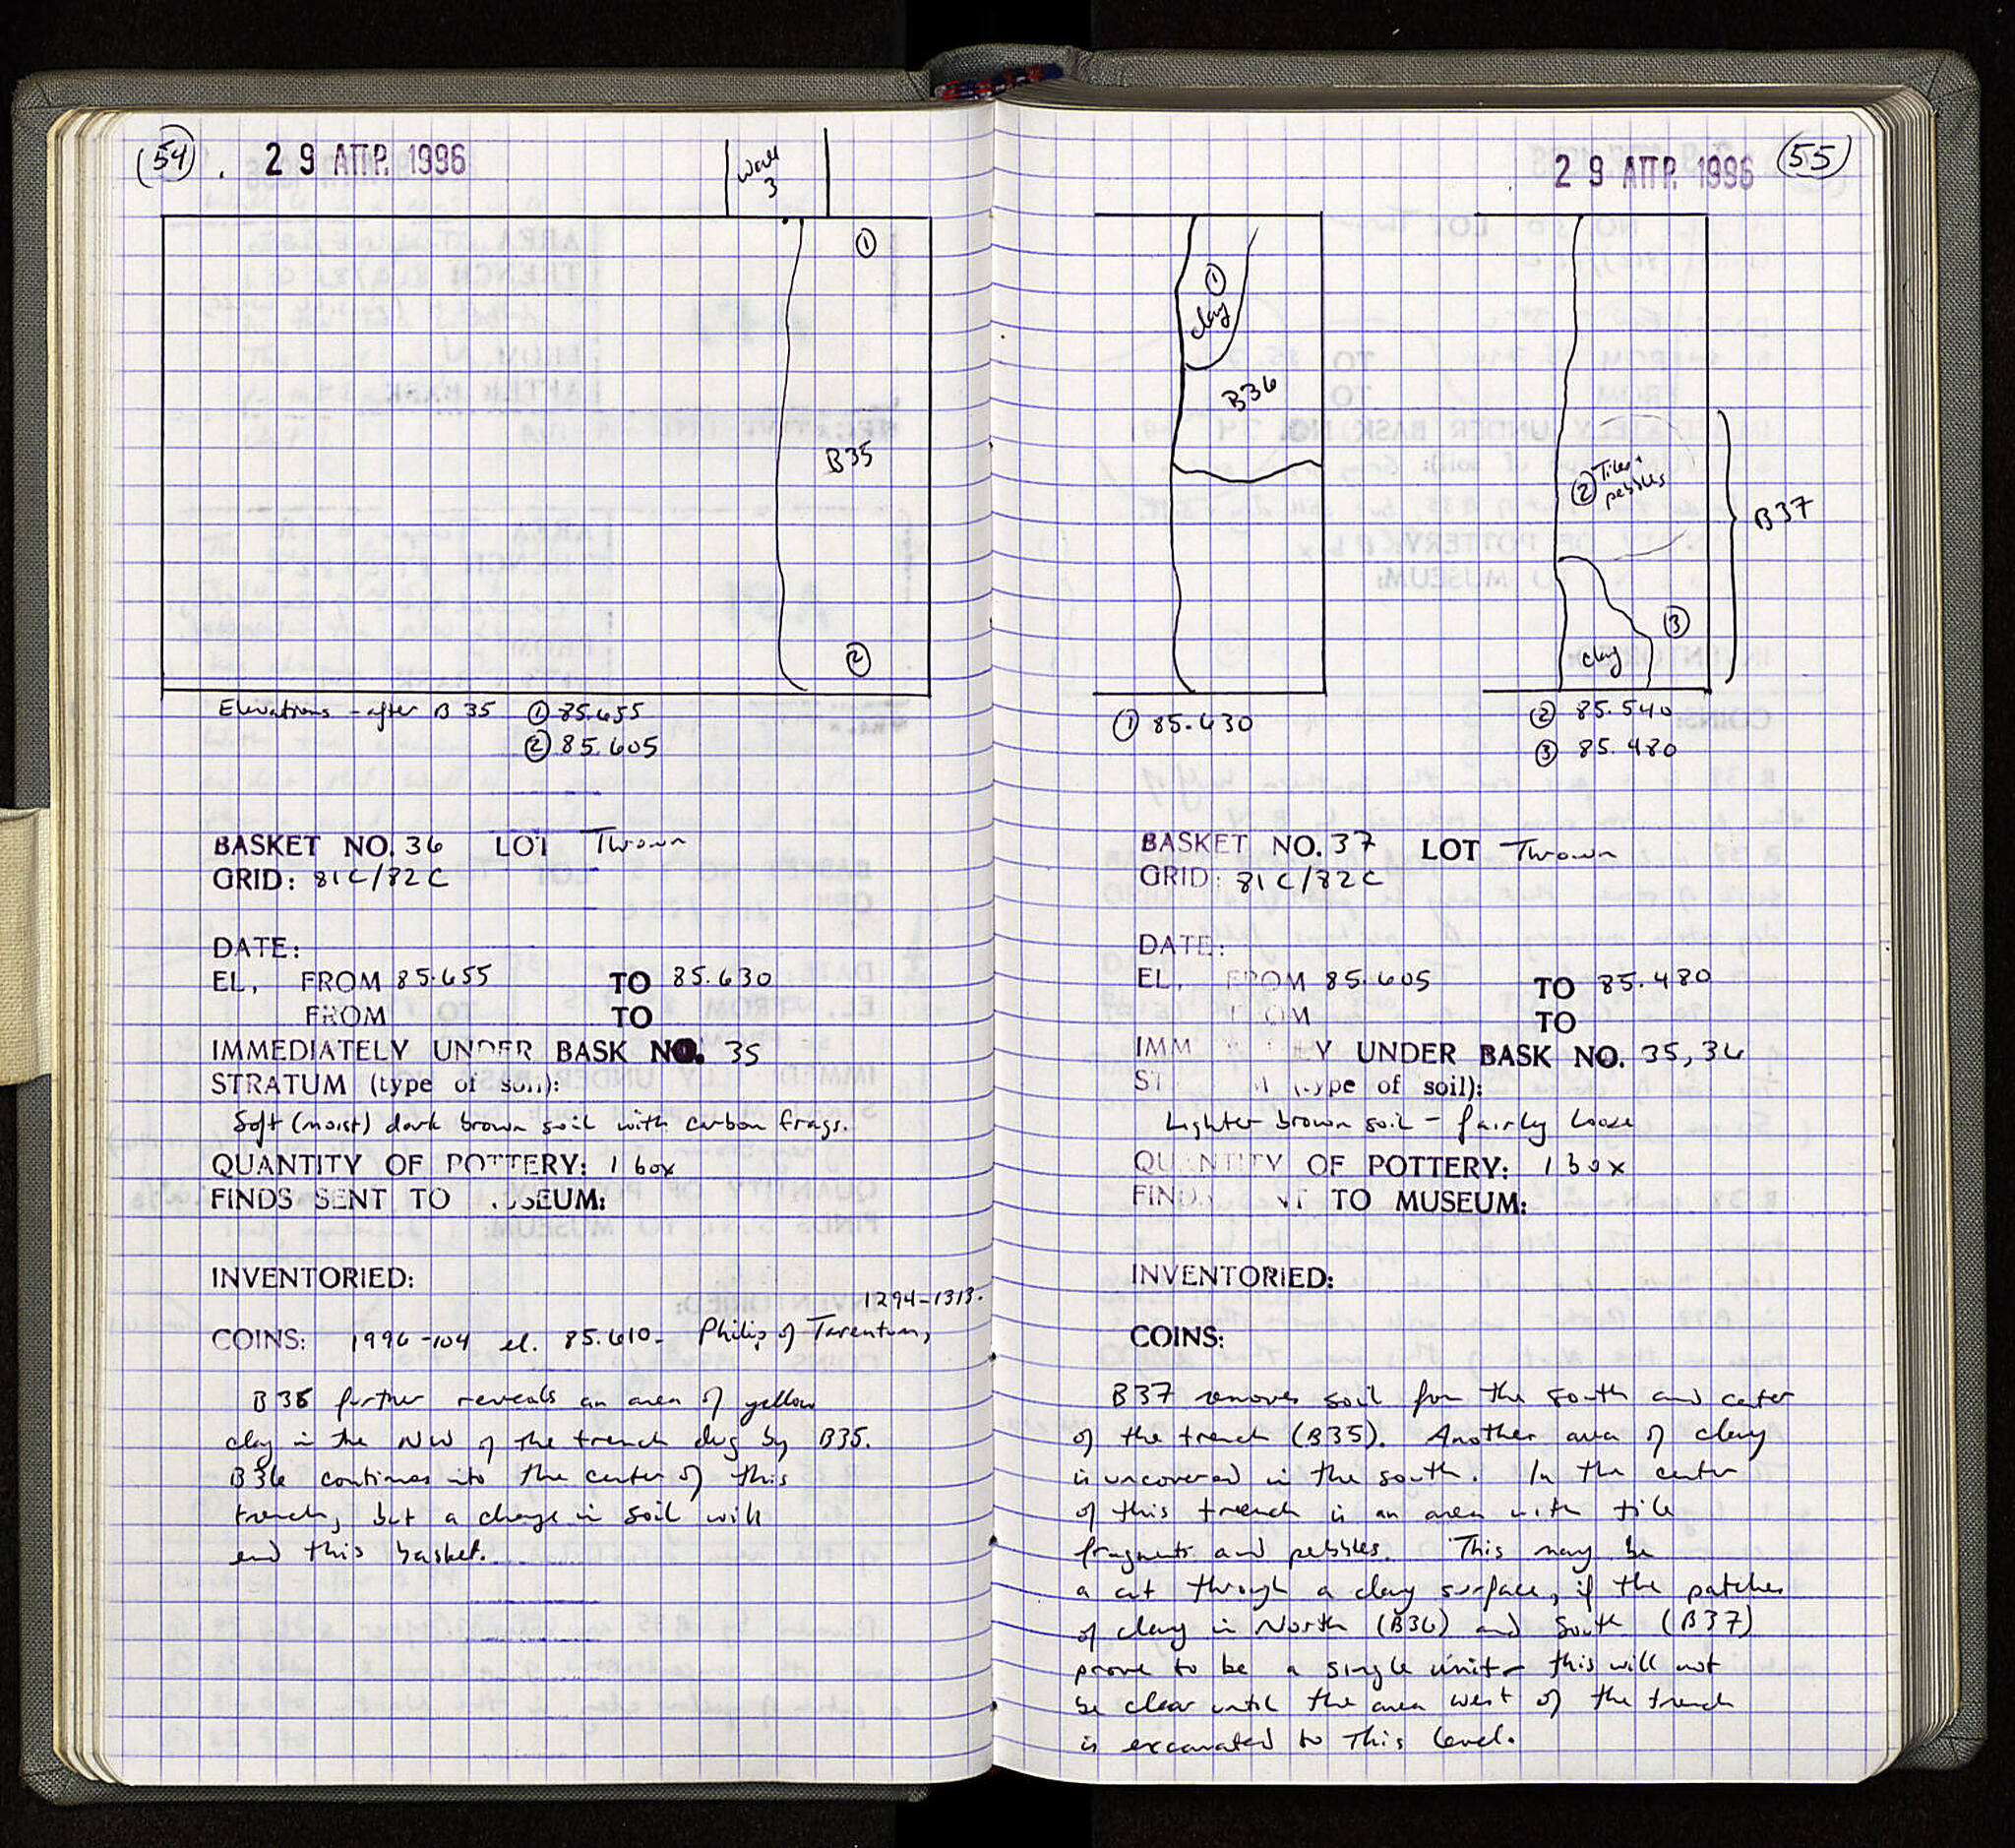 (54) . 29 ΑΠΡ. 1996
Wall
3
①
B35
②
Elevations - after B 35 ① 85.655
② 85.605
BASKET NO. 36 LOT Thrown
GRID: 81C/82C
DATE:
EL. FROM 85.655 TO 85.630
FROM TO
IMMEDIATELY UNDER BASK NO. 35
STRATUM (type of soil):
Soft (moist) dark brown soil with carbon frags.
QUANTITY OF POTTERY: 1 box
FINDS SENT TO MUSEUM:
INVENTORIED:
1294-1313.
COINS: 1996-104 el. 85.610 - Philip of Tarentum,
B36 further reveals an area of yellow
clay in the NW of the trench dug by B35.
B36 continues into the center of this
trench, but a change in soil will
end this basket.
29 ΑΠΡ. 1996 (55)
①
clay
B36
② Tiles +
pebbles
B37
③
clay
① 85.630
② 85.540
③ 85.480
BASKET NO. 37 LOT Thrown
GRID: 81C/82C
DATE:
EL. FROM 85.605 TO 85.480
FROM TO
IMMEDIATELY UNDER BASK NO. 35, 36
STRATUM (type of soil):
Lighter brown soil - fairly loose
QUANTITY OF POTTERY: 1 box
FINDS SENT TO MUSEUM:
INVENTORIED:
COINS:
B37 removes soil from the south and center
of the trench (B35). Another area of clay
is uncovered in the south. In the center
of this trench is an area with tile
fragments and pebbles. This may be
a cut through a clay surface, if the patches
of clay in North (B36) and South (B37)
prove to be a single unit - this will not
be clear until the area west of the trench
is excavated to this level.